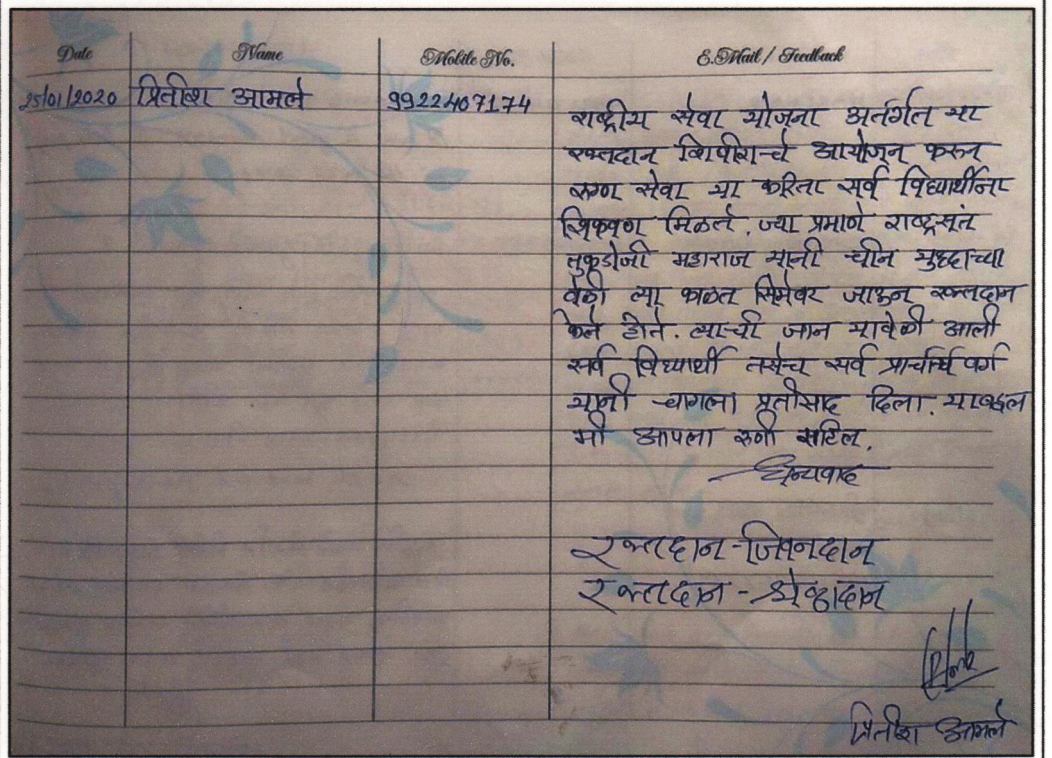 Date Name Mobile No. E.Mail / Feedback
25/01/2020 प्रितीश आमले 9922407174
राष्ट्रीय सेवा योजना अतंर्गत या
रक्तदान शिबीराचे आयोजन करून
रुग्ण सेवा या करिता सर्व विद्यार्थीना
शिकवण मिळते. ज्या प्रमाणे राष्ट्रसंत
तुकडोजी महाराज यानी चीन युद्धाच्या
वेळी त्या काळत सिमेवर जाऊन रक्तदान
केले होते. त्याची जान यावेळी आली
सर्व विद्यार्थी तसेच सर्व प्राचार्य वर्ग
यानी चागला प्रतीसाद दिला. याबद्दल
मी आपला रुणी राहिल.
धन्यवाद
रक्तदान - जिवनदान
रक्तदान - श्रेष्ठदान
प्रितीश आमले